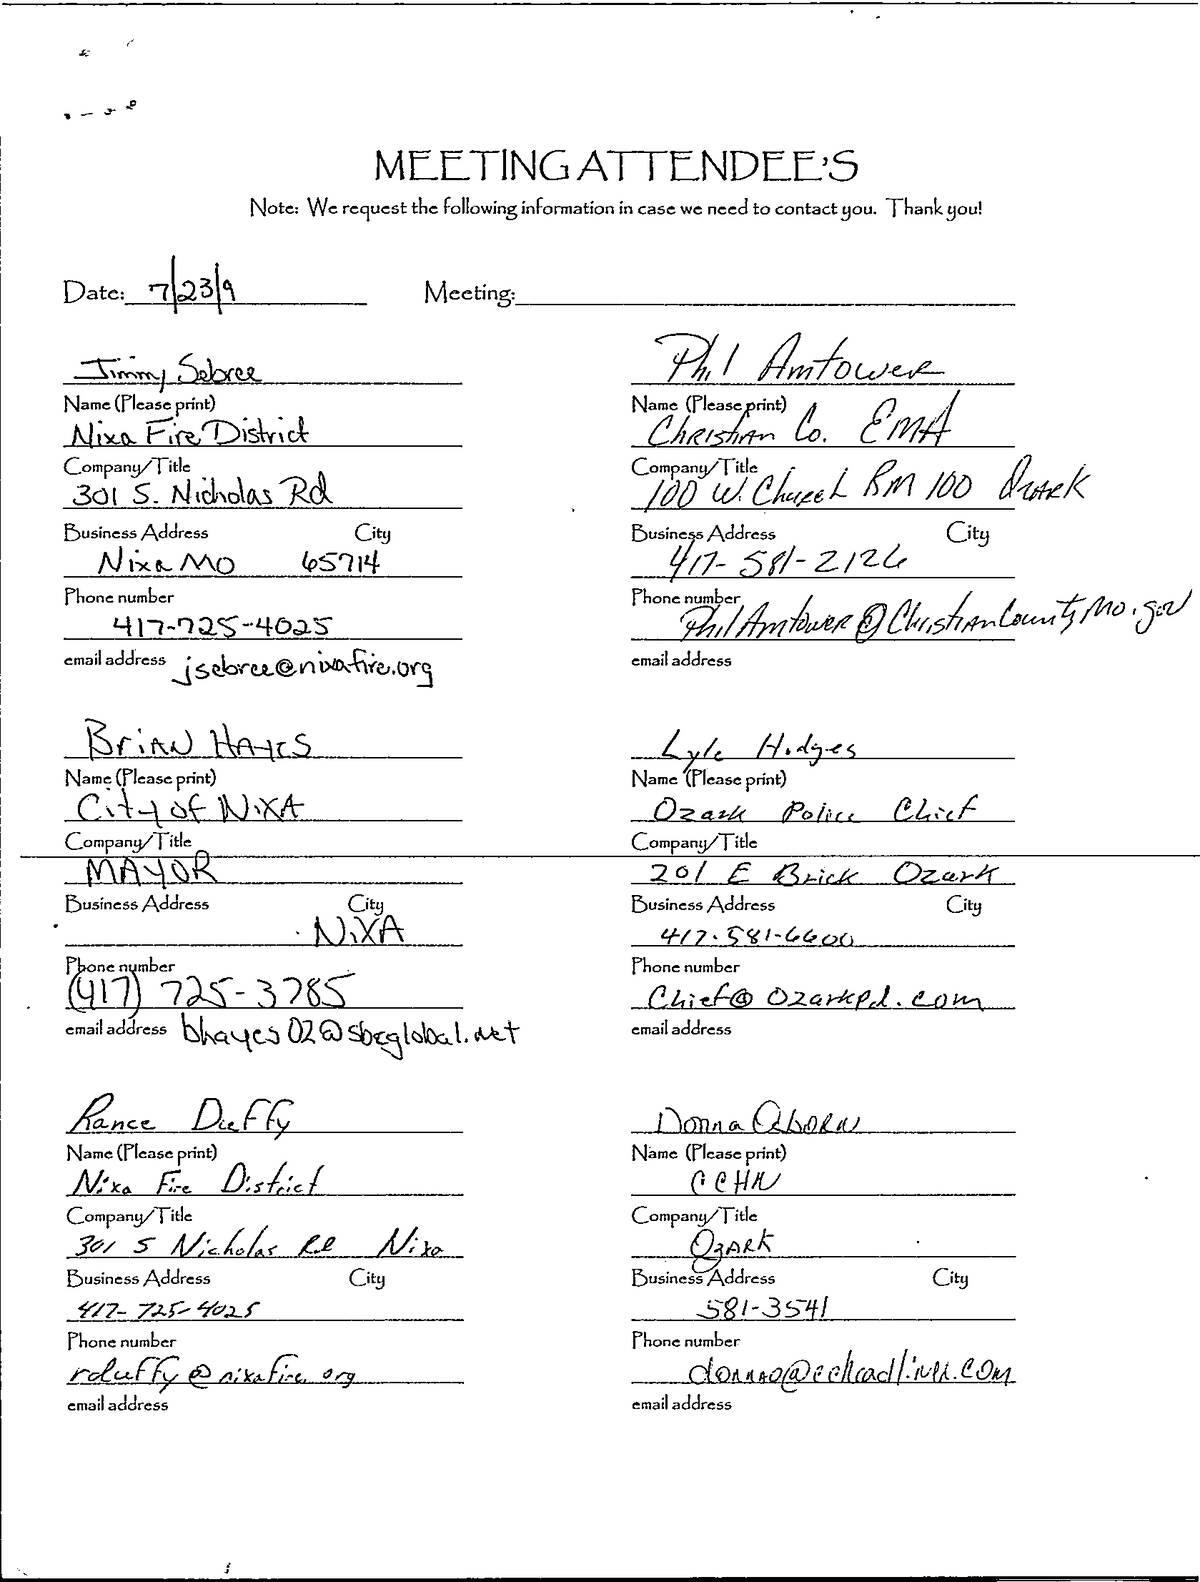 MEETING ATTENDEE'S
Note: We request the following information in case we need to contact you. Thank you!
Date: 7/23/9 Meeting:
Jimmy Sebree
Name (Please print)
Nixa Fire District
Company/Title
301 S. Nicholas Rd
Business Address City
Nixa MO 65714
Phone number
417-725-4025
email address jsebree@nixafire.org
Phil Amtower
Name (Please print)
Christian Co. EMA
Company/Title
100 W. Church RM 100 Ozark
Business Address City
417-581-2126
Phone number
PhilAmtower@ChristianCountyMo.gov
email address
Brian Hayes
Name (Please print)
City of Nixa
Company/Title
MAYOR
Business Address City
NiXA
Phone number
(417) 725-3785
email address bhayes02@sbcglobal.net
Lyle Hodges
Name (Please print)
Ozark Police Chief
Company/Title
201 E Brick Ozark
Business Address City
417-581-6600
Phone number
Chief@Ozarkpd.com
email address
Rance Duffy
Name (Please print)
Nixa Fire District
Company/Title
301 S Nicholas Rd Nixa
Business Address City
417-725-4025
Phone number
rduffy@nixafire.org
email address
Donna Osborn
Name (Please print)
CCHN
Company/Title
Ozark
Business Address City
581-3541
Phone number
email address